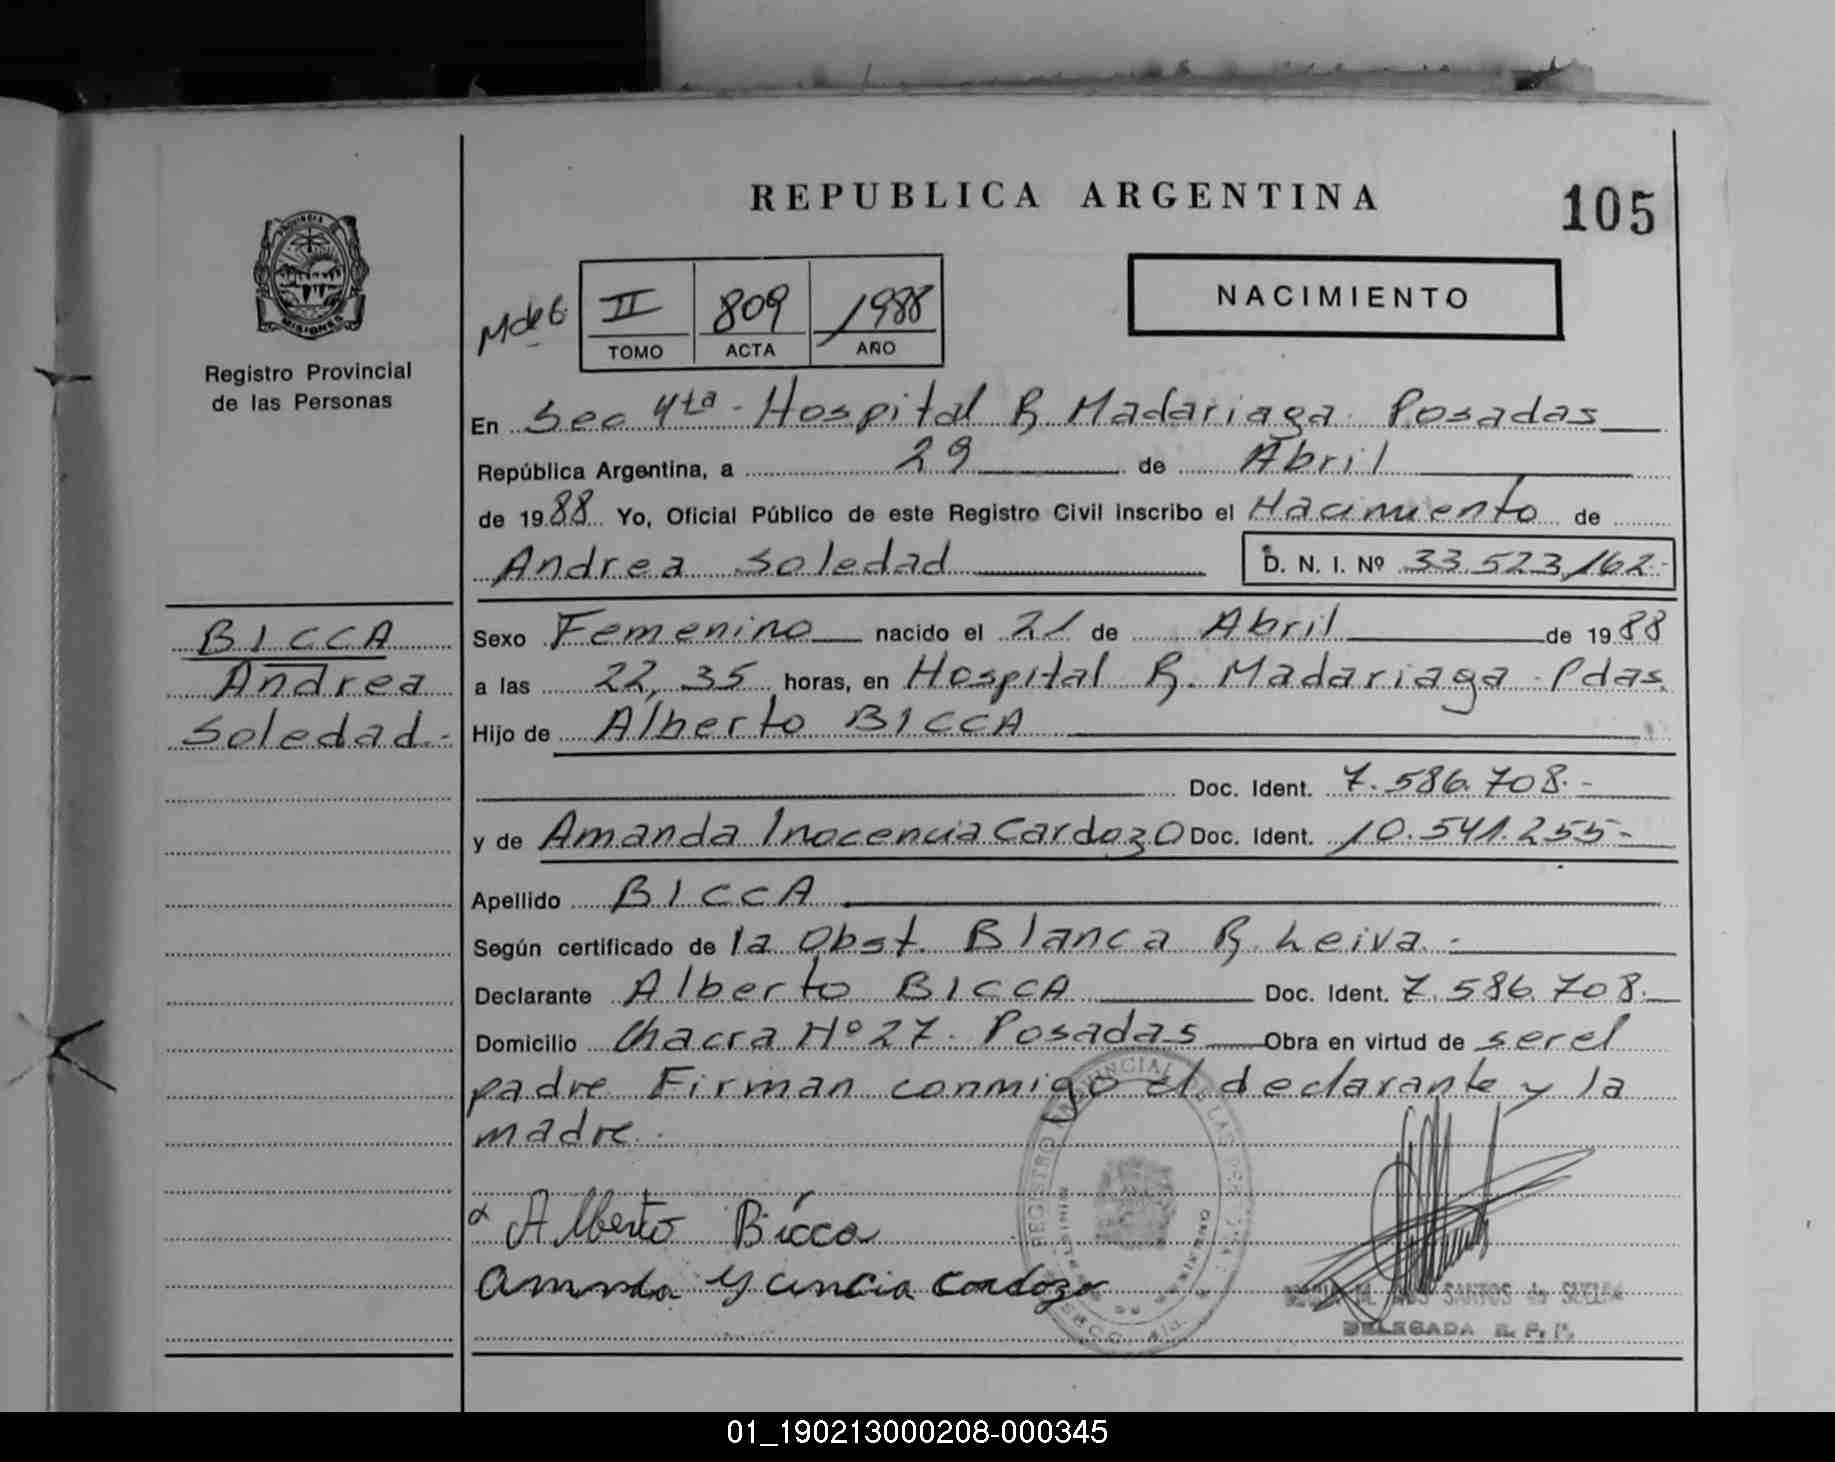 REPUBLICA ARGENTINA
105
PROVINCIA
MISIONES
Registro Provincial
de las Personas
II 809 1988
TOMO ACTA AÑO
NACIMIENTO
En Sec 4ta - Hospital R. Madariaga. Posadas
República Argentina, a 29 de Abril
de 1988 Yo, Oficial Público de este Registro Civil inscribo el Nacimiento de
Andrea Soledad D. N. I. Nº 33.523.162.-
BICCA
Andrea
Soledad.-
Sexo Femenino nacido el 21 de Abril de 1988
a las 22,35 horas, en Hospital R. Madariaga - Pdas.
Hijo de Alberto BICCA
Doc. Ident. 7.586.708.-
y de Amanda Inocencia Cardozo Doc. Ident. 10.541.255-
Apellido BICCA
Según certificado de la Obst. Blanca R. Leiva.-
Declarante Alberto BICCA Doc. Ident. 7.586.708.
Domicilio Chacra Nº 27. Posadas Obra en virtud de ser el
padre. Firman conmigo el declarante y la
madre.
Alberto Bicca
Cardozo
REGISTRO PROVINCIAL DE LAS
SANTOS de
DELEGADA R. P. P.
01_190213000208-000345